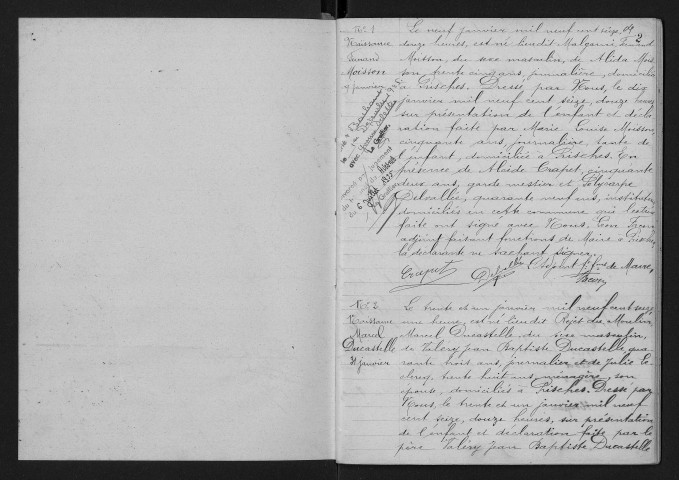 N° 1
Naissance
Fernand
Moisson
9 janvier
Le neuf janvier mil neuf cent seize,
2
douze heures, est né lieudit Malgarni, Fernand
Moisson, du sexe masculin, de Alida Mois-
son, trente cinq ans, journalière, domiciliée
à Prisches. Dressé par Nous, le dix
janvier mil neuf cent seize, douze heures
sur présentation de l'enfant et décla-
ration faite par Marie Louise Moisson,
cinquante ans, journalière, tante de
l'enfant, domiciliée à Prisches. En
présence de Alcide Crapet, cinquante
deux ans, garde messier et Polycarpe
Delvallée, quarante neuf ans, instituteur
domiciliés en cette commune qui lecture
faite ont signé avec Nous
adjoint faisant fonctions de Maire à Prisches
la déclarante ne sachant signer.
Crapet
L'Adjoint f. fons de Maire,
N° 2
Naissance
Marcel
Ducastelle
31 janvier
Le trente et un janvier mil neuf cent seize
une heure, est né lieudit Rejet du Moulin,
Marcel Ducastelle, du sexe masculin,
de Valéry Jean Baptiste Ducastelle, qua-
rante trois ans, journalier et de Julie
trente huit ans, ménagère, son
épouse, domiciliés à Prisches. Dressé par
Nous, le trente et un janvier mil neuf
cent seize, douze heures, sur présentation
de l'enfant et déclaration faite par le
père Valéry Jean Baptiste Ducastelle